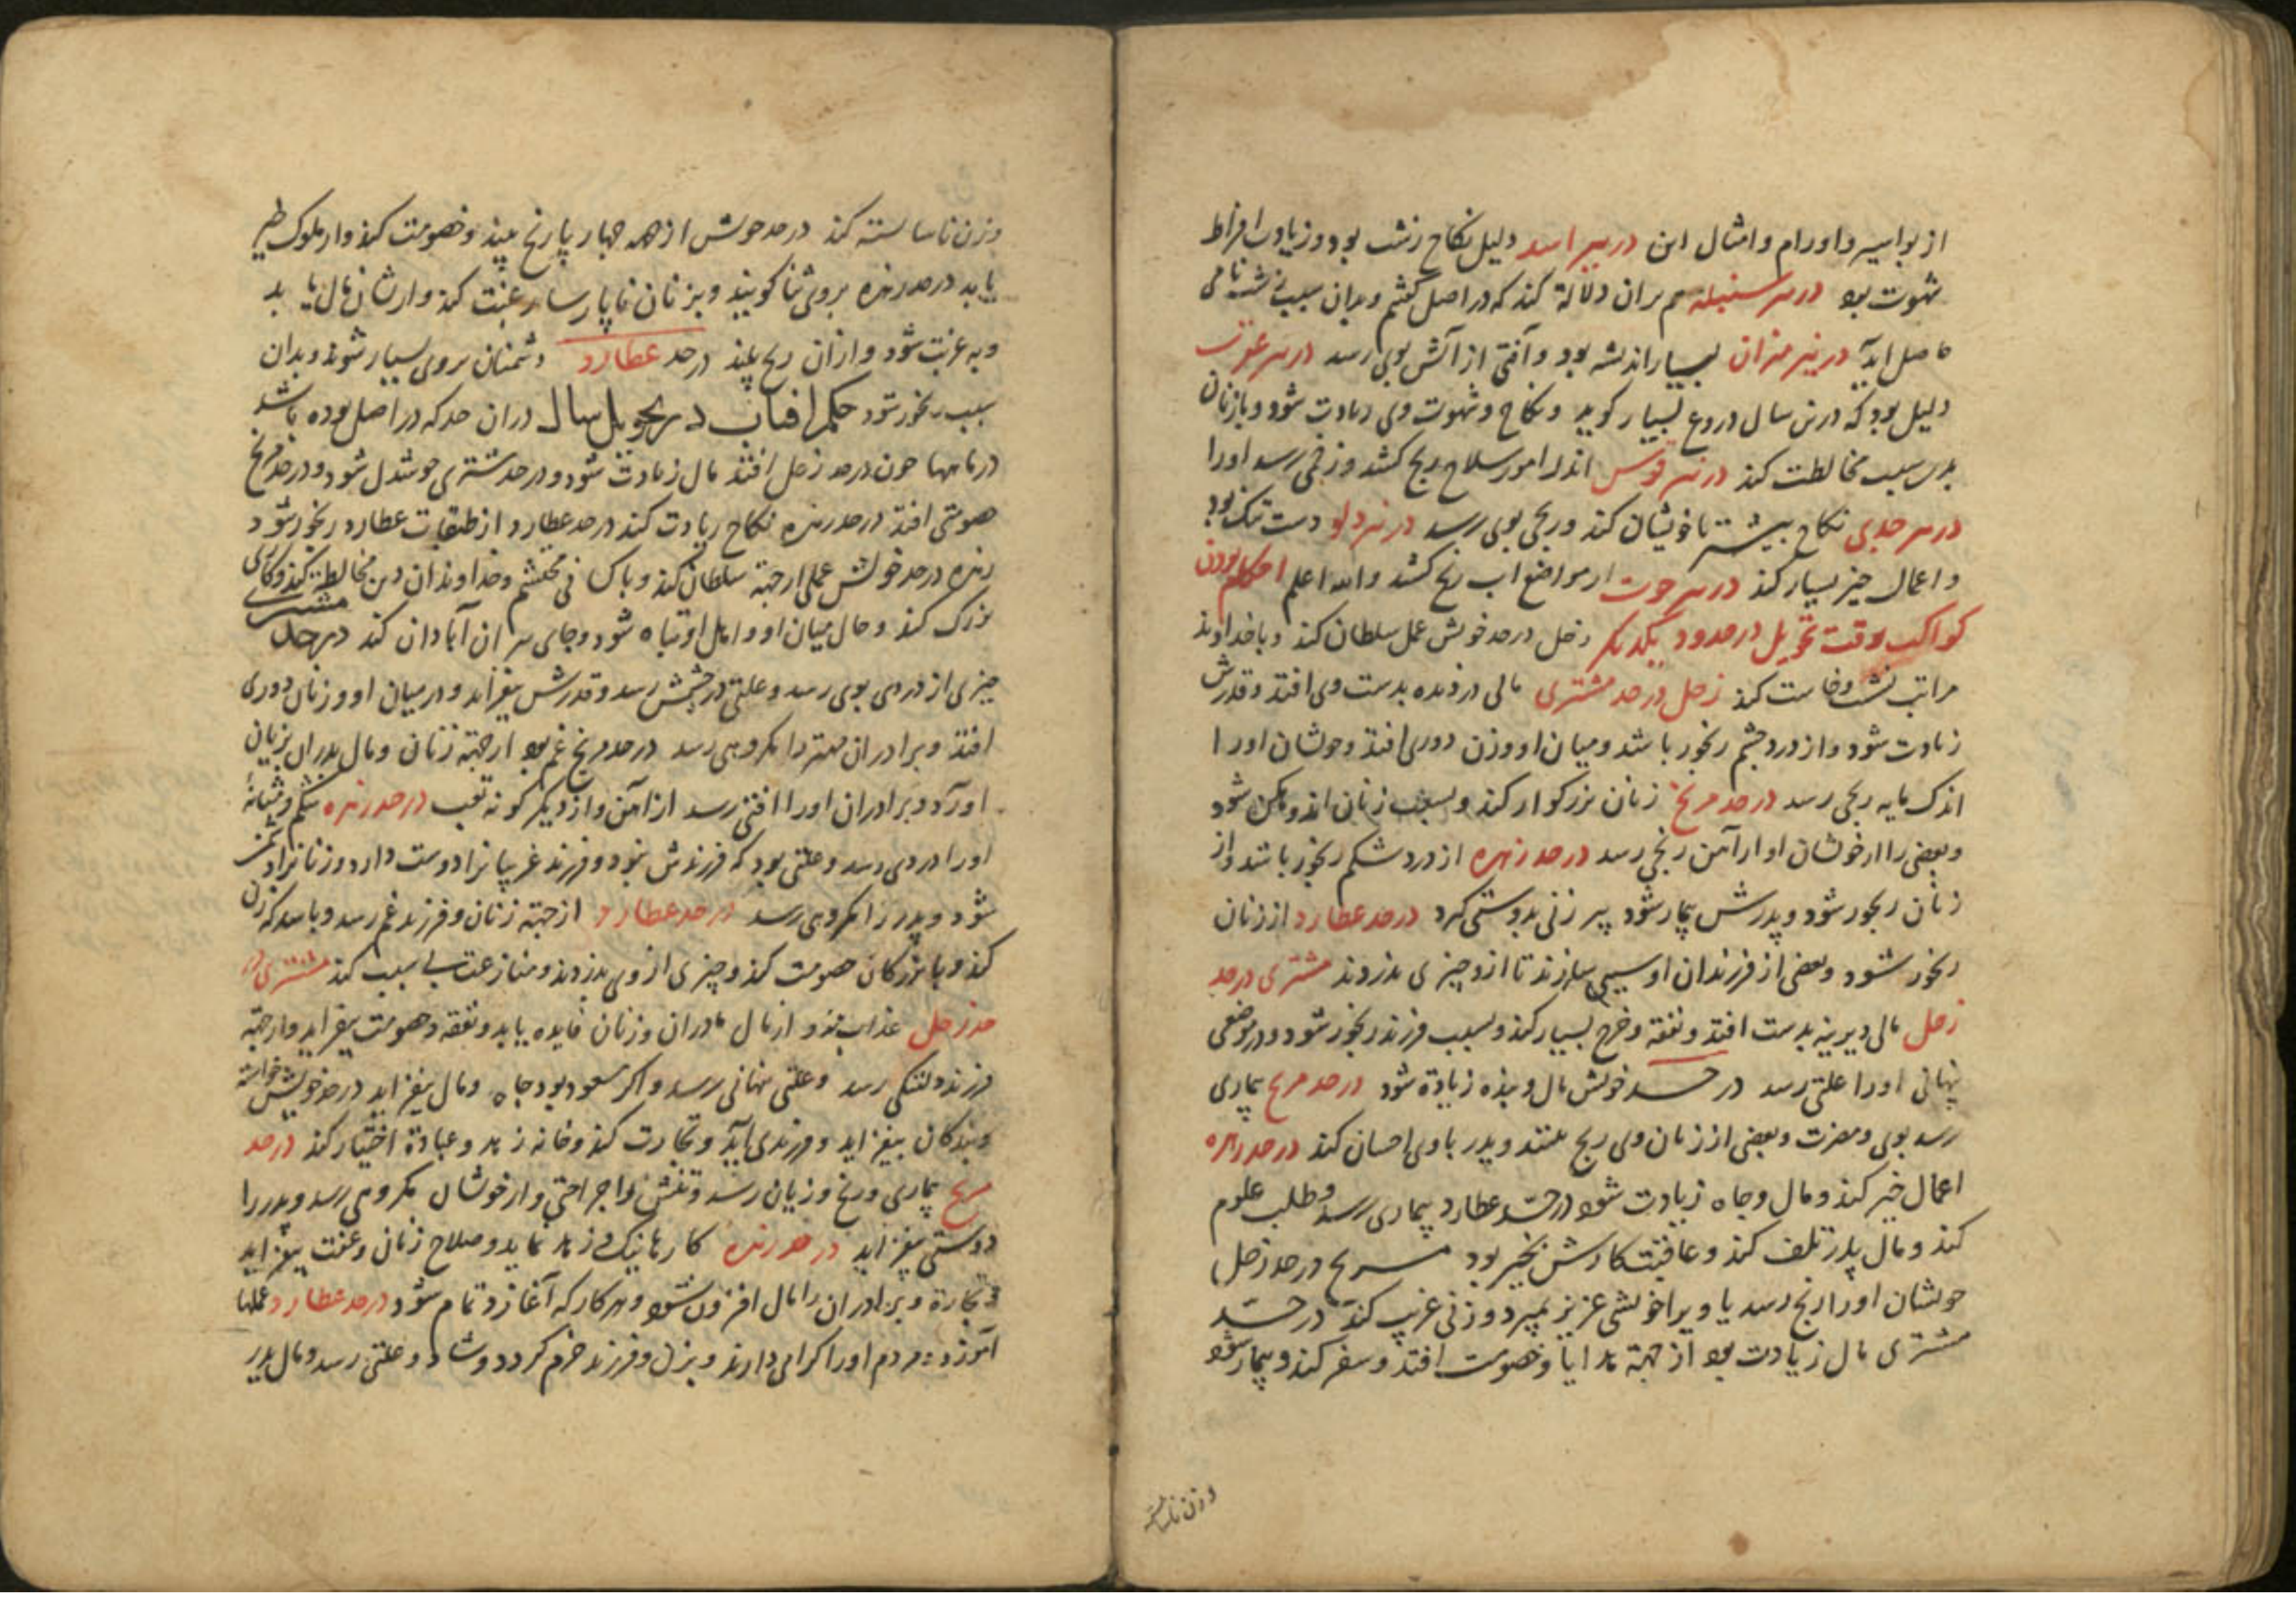 از بواسیر و اورام و امثال این در نیر اسد دلیل نکاح زشت بود و زیادت افراط
شهوت بود در نیر سنبله هم بران دلالة کند که در اصل گفتیم و بدان سبب
حاصل آید در نیر میزان بسیار اندیشه بود و آفتی از آتش بوی رسد در نیر عقرب
دلیل بود که درین سال دروغ بسیار گوید و نکاح و شهوت وی زیادت شود و با زنان
بدین سبب مخالطت کند در نیر قوس اندر امور سلاح رنج کشد و زخمی رسد اورا
در نیر جدی نکاح بیشتر با خویشان کند و رنجی بوی رسد در نیر دلو دست تنگ بود
و اعمال خیر بسیار کند در نیر حوت از مواضع آب رنج کشد والله اعلم احکام بودن
کواکب بوقت تحویل در حدود یکدیگر زحل در حد خویش عمل سلطان کند و با خداوند
مراتب نشست و خاست کند زحل در حد مشتری مالی دزدیده بدست وی افتد و قدرش
زیادت شود و از درد چشم رنجور باشد و میان او و زن دوری افتد و خویشان اورا
اندک مایه رنجی رسد در حد مریخ زنان بزرکوار کند و بسبب زنان اندوهگن شود
و بعضی را از خویشان او از آهن رنجی رسد در حد زهره از درد شکم رنجور باشد و از
زنان رنجور شود و پدرش بیمار شود پیر زنی بدوستی گیرد در حد عطارد از زنان
رنجور شود و بعضی از فرزندان او سببی سازند تا ازو چیزی بدزدند مشتری در حد
زحل مالی دیرینه بدست افتد و نفقه و خرج بسیار کند و بسبب فرزند رنجور شود و در موضعی
پنهانی اورا علتی رسد در حد خویش مال و بنده زیادة شود در حد مریخ بیماری
رسد بوی و مضرت و بعضی از زنان وی رنج بینند و پدر با وی احسان کند در حد زهره
اعمال خیر کند و مال و جاه زیادت شود در حد عطارد بیماری رسد و طلب علوم
کند و مال پدر تلف کند و عاقبت کارش بخیر بود مریخ در حد زحل
خویشان اورا رنج رسد یا ویرا خویشی عزیز بمیرد و زنی غریب کند در حد
مشتری مال زیادت بود از جهة هدایا و خصومت افتد و سفر کند و بیمار شود
و زن ناشایسته
و زن ناشایسته کند در حد خویش از همه چهارپا رنج بیند و خصومت کند و از ملوک
یابد در حد زهره بروی ثنا گویند و بزنان ناپارسا رغبت کند و از شان مال یابد
و به غربت شود و از آن رنج بیند در حد عطارد دشمنان بروی بسیار شوند و بدان
سبب رنجور شود حکم آفتاب در تحویل سال در آن حد که در اصل بوده باشد
در ماهها چون در حد زحل افتد مال زیادت شود و در حد مشتری خوشدل شود و در حد مریخ
خصومتی افتد در حد زهره نکاح زیادت کند در حد عطارد از طبقات عطارد رنجور شود
زهره در حد خویش عملی از جهة سلطان کند و با کسانی محتشم و خداوندان دین مخالطت کند و کاری
بزرک کند و حال میان او و اهل او تباه شود و جای ویران آبادان کند در حد مشتری
چیزی از دزدی بوی رسد و علتی در چشمش رسد و قدرش بیفزاید و در میان او و زنان دوری
افتد و برادران مهتر را مکروهی رسد در حد مریخ غم بود از جهة زنان و مال پدران بزیان
آورد و برادران اورا آفتی رسد از آهن و از دیگر گونه تعب در حد زهره شکم و مثانهٔ
اورا دردی رسد و علتی بود که فرزندش نبود و فرزند غریبانرا دوست دارد و زنانرا دشمن
شود و پدر را مکروهی رسد در حد عطارد از جهة زنان و فرزند غم رسد و باشد که زن
کند و با بزرکان خصومت کند و چیزی از وی بدزدند و منازعت بی سبب کند مشتری در
حد زحل عذاب بیند و از مال مادران و زنان فایده یابد و نفقه و خصومت بیفزاید و از جهة
فرزند دلتنگی رسد و علتی نهانی برسد و اگر مسعود بود جاه و مال بیفزاید در حد خویش خواسته
و بندگان بیفزاید و فرزندی آید و تجارت کند و خانه زید و عبادة اختیار کند در حد
مریخ بیماری و رنج و زیان رسد و تنش را جراحتی و از خویشان مکروهی رسد و پدر را
دوستی بیفزاید در حد زهره کارها نیک ... و صلاح زنان و عفت بیفزاید
و تجارة و برادران را مال افزون شود و هر کار که آغازد تمام شود در حد عطارد عملها
آموزد و مردم اورا گرامی دارند و بزن و فرزند خرم گردد و شاد و علتی رسد و مال پدر